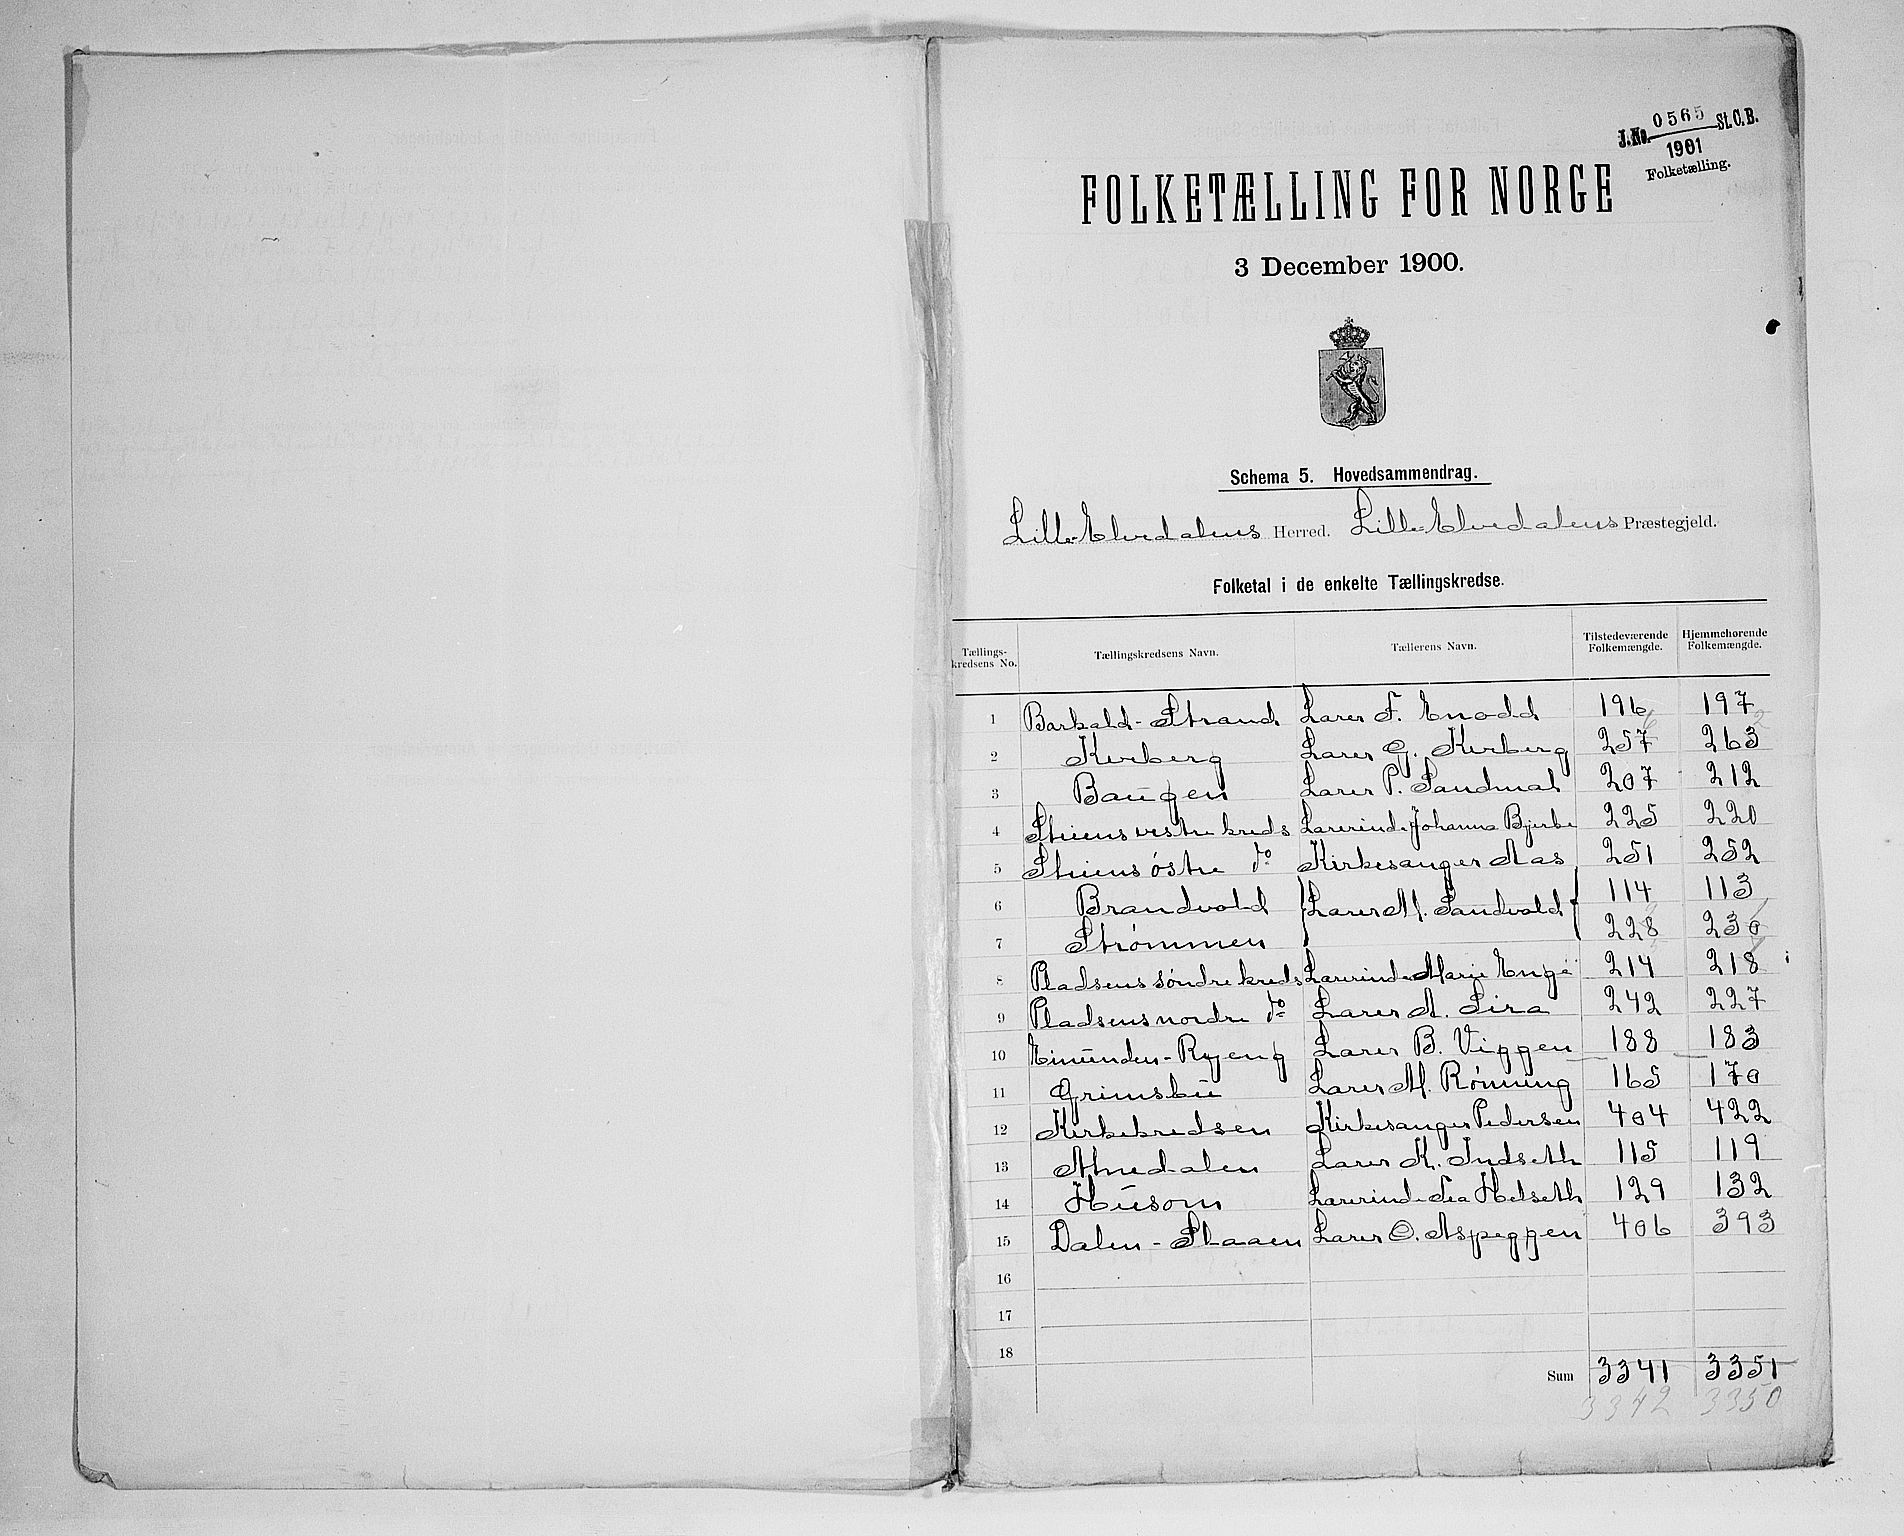 J.No. 0565 St.C.B.
1901
Folketælling.
FOLKETÆLLING FOR NORGE
3 December 1900.
Schema 5. Hovedsammendrag.
Lille-Elvedalens Herred. Lille-Elvedalens Præstegjeld.
Folketal i de enkelte Tællingskredse.
Tællings-kredsens No. Tællingskredsens Navn. Tællerens Navn. Tilstedeværende Folkemængde. Hjemmehørende Folkemængde.
1 Barkald-Strand Lærer F. Enodd 196 197
2 Kveberg Lærer G. Kveberg 257 263
3 Baugen Lærer P. Sandmæl 207 212
4 Steiens vestre kreds Lærerinde Johanna Bjerke 225 220
5 Steiens østre do Kirkesanger Aas 251 252
6 Brandvold Lærer M. Sandvold 114 113
7 Strømmen 228 230
8 Pladsens søndre kreds Lærerinde Marie Enge 214 218
9 Pladsens nordre do Lærer A. Lira 242 227
10 Einunden-Ryeng Lærer B. Viggen 188 183
11 Grimsbu Lærer M. Rønning 165 170
12 Kirkekredsen Kirkesanger Pedersen 404 422
13 Atnedalen Lærer K. Indseth 115 119
14 Husom Lærerinde Helseth 129 132
15 Dalen-Staaen Lærer O. Aspeggen 406 393
16
17
18
Sum 3341 3351
3342 3350